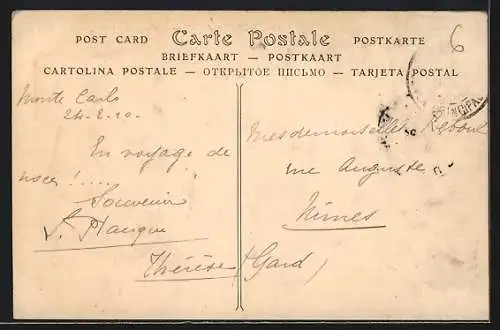 POST CARD Carte Postale POSTKARTE
BRIEFKAART — POSTKAART
CARTOLINA POSTALE — ОТКРЫТОЕ ПИСЬМО — TARJETA POSTAL
6
Monte Carlo
24.2.10.
En voyage de
noce !.....
Souvenir
Thérèse
Mesdemoiselles Reboul
rue Auguste
Nîmes
(Gard)